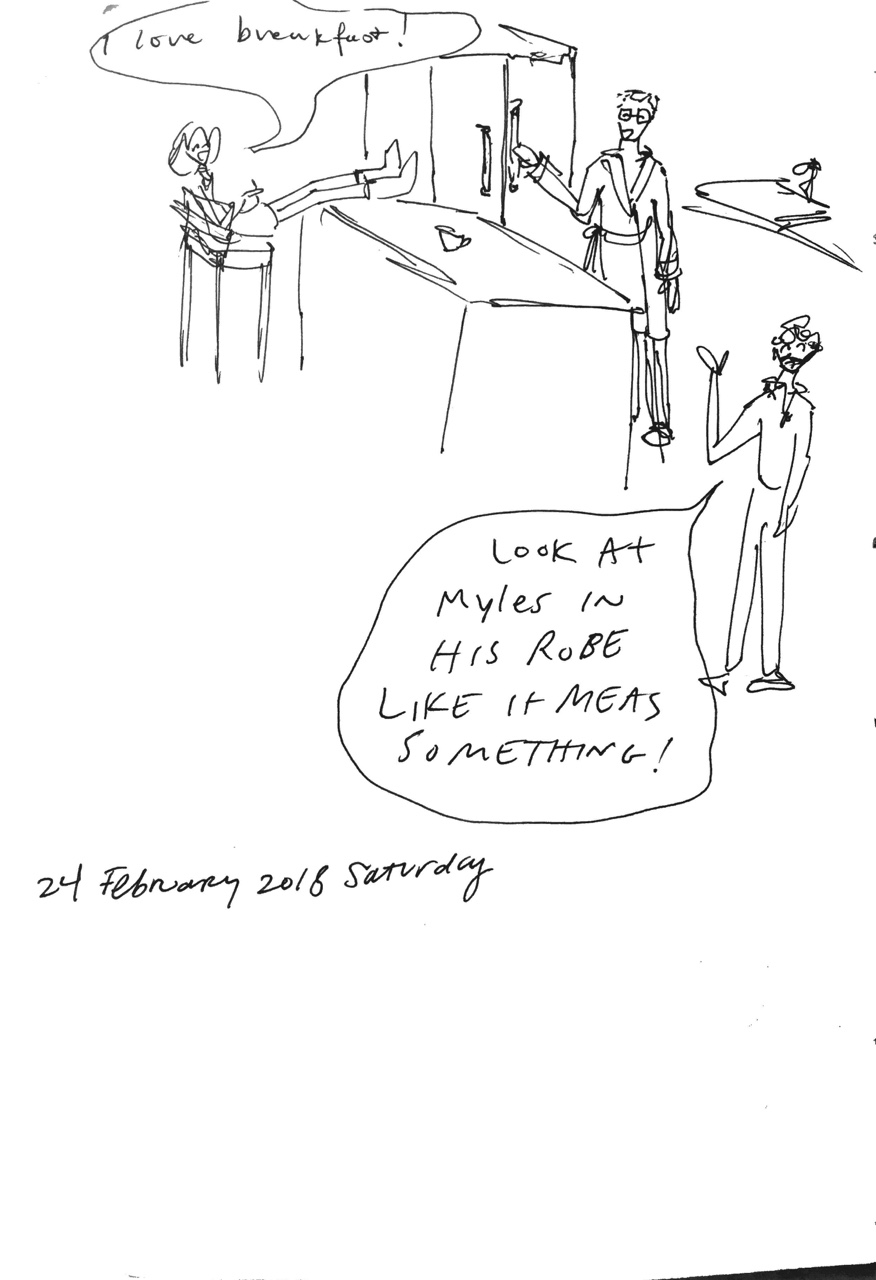 I love breakfast!
LOOK At
Myles IN
HIS ROBE
LIKE It MEAS
SOMETHING!
24 February 2018 Saturday